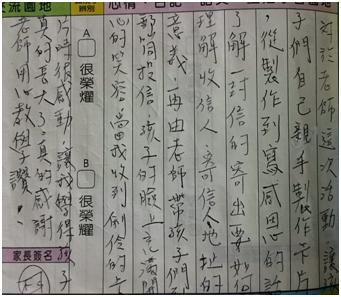 對於老師這次活動，讓
子們自己親手製作卡片
，從製作到寫感恩的
了解一封信的寄出要如
理解收信人、寄信人地址的
意義，再由老師帶孩子們
郵筒投信，孩子的臉上充滿開
心的笑容，當我收到
片時很感動，讓我覺得孩子
真的長大了，真的感謝
老師用心教學，讚！
流園地
心情
日記
A
很榮耀
B
很榮耀
家長簽名